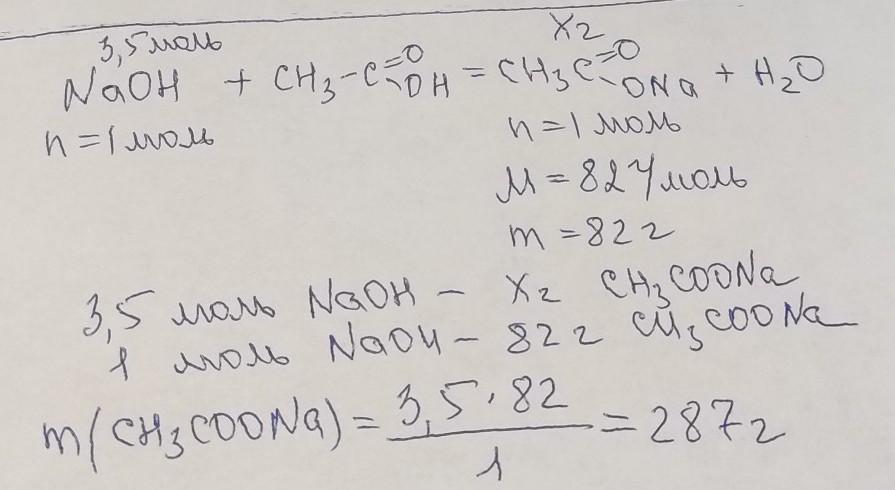 3,5 моль X г
NaOH + CH₃-C=O-OH = CH₃C=O-ONa + H₂O
n = 1 моль n = 1 моль
M = 82 г/моль
m = 82 г
3,5 моль NaOH – X г CH₃COONa
1 моль NaOH – 82 г CH₃COONa
m(CH₃COONa) = 3,5 · 82 / 1 = 287 г